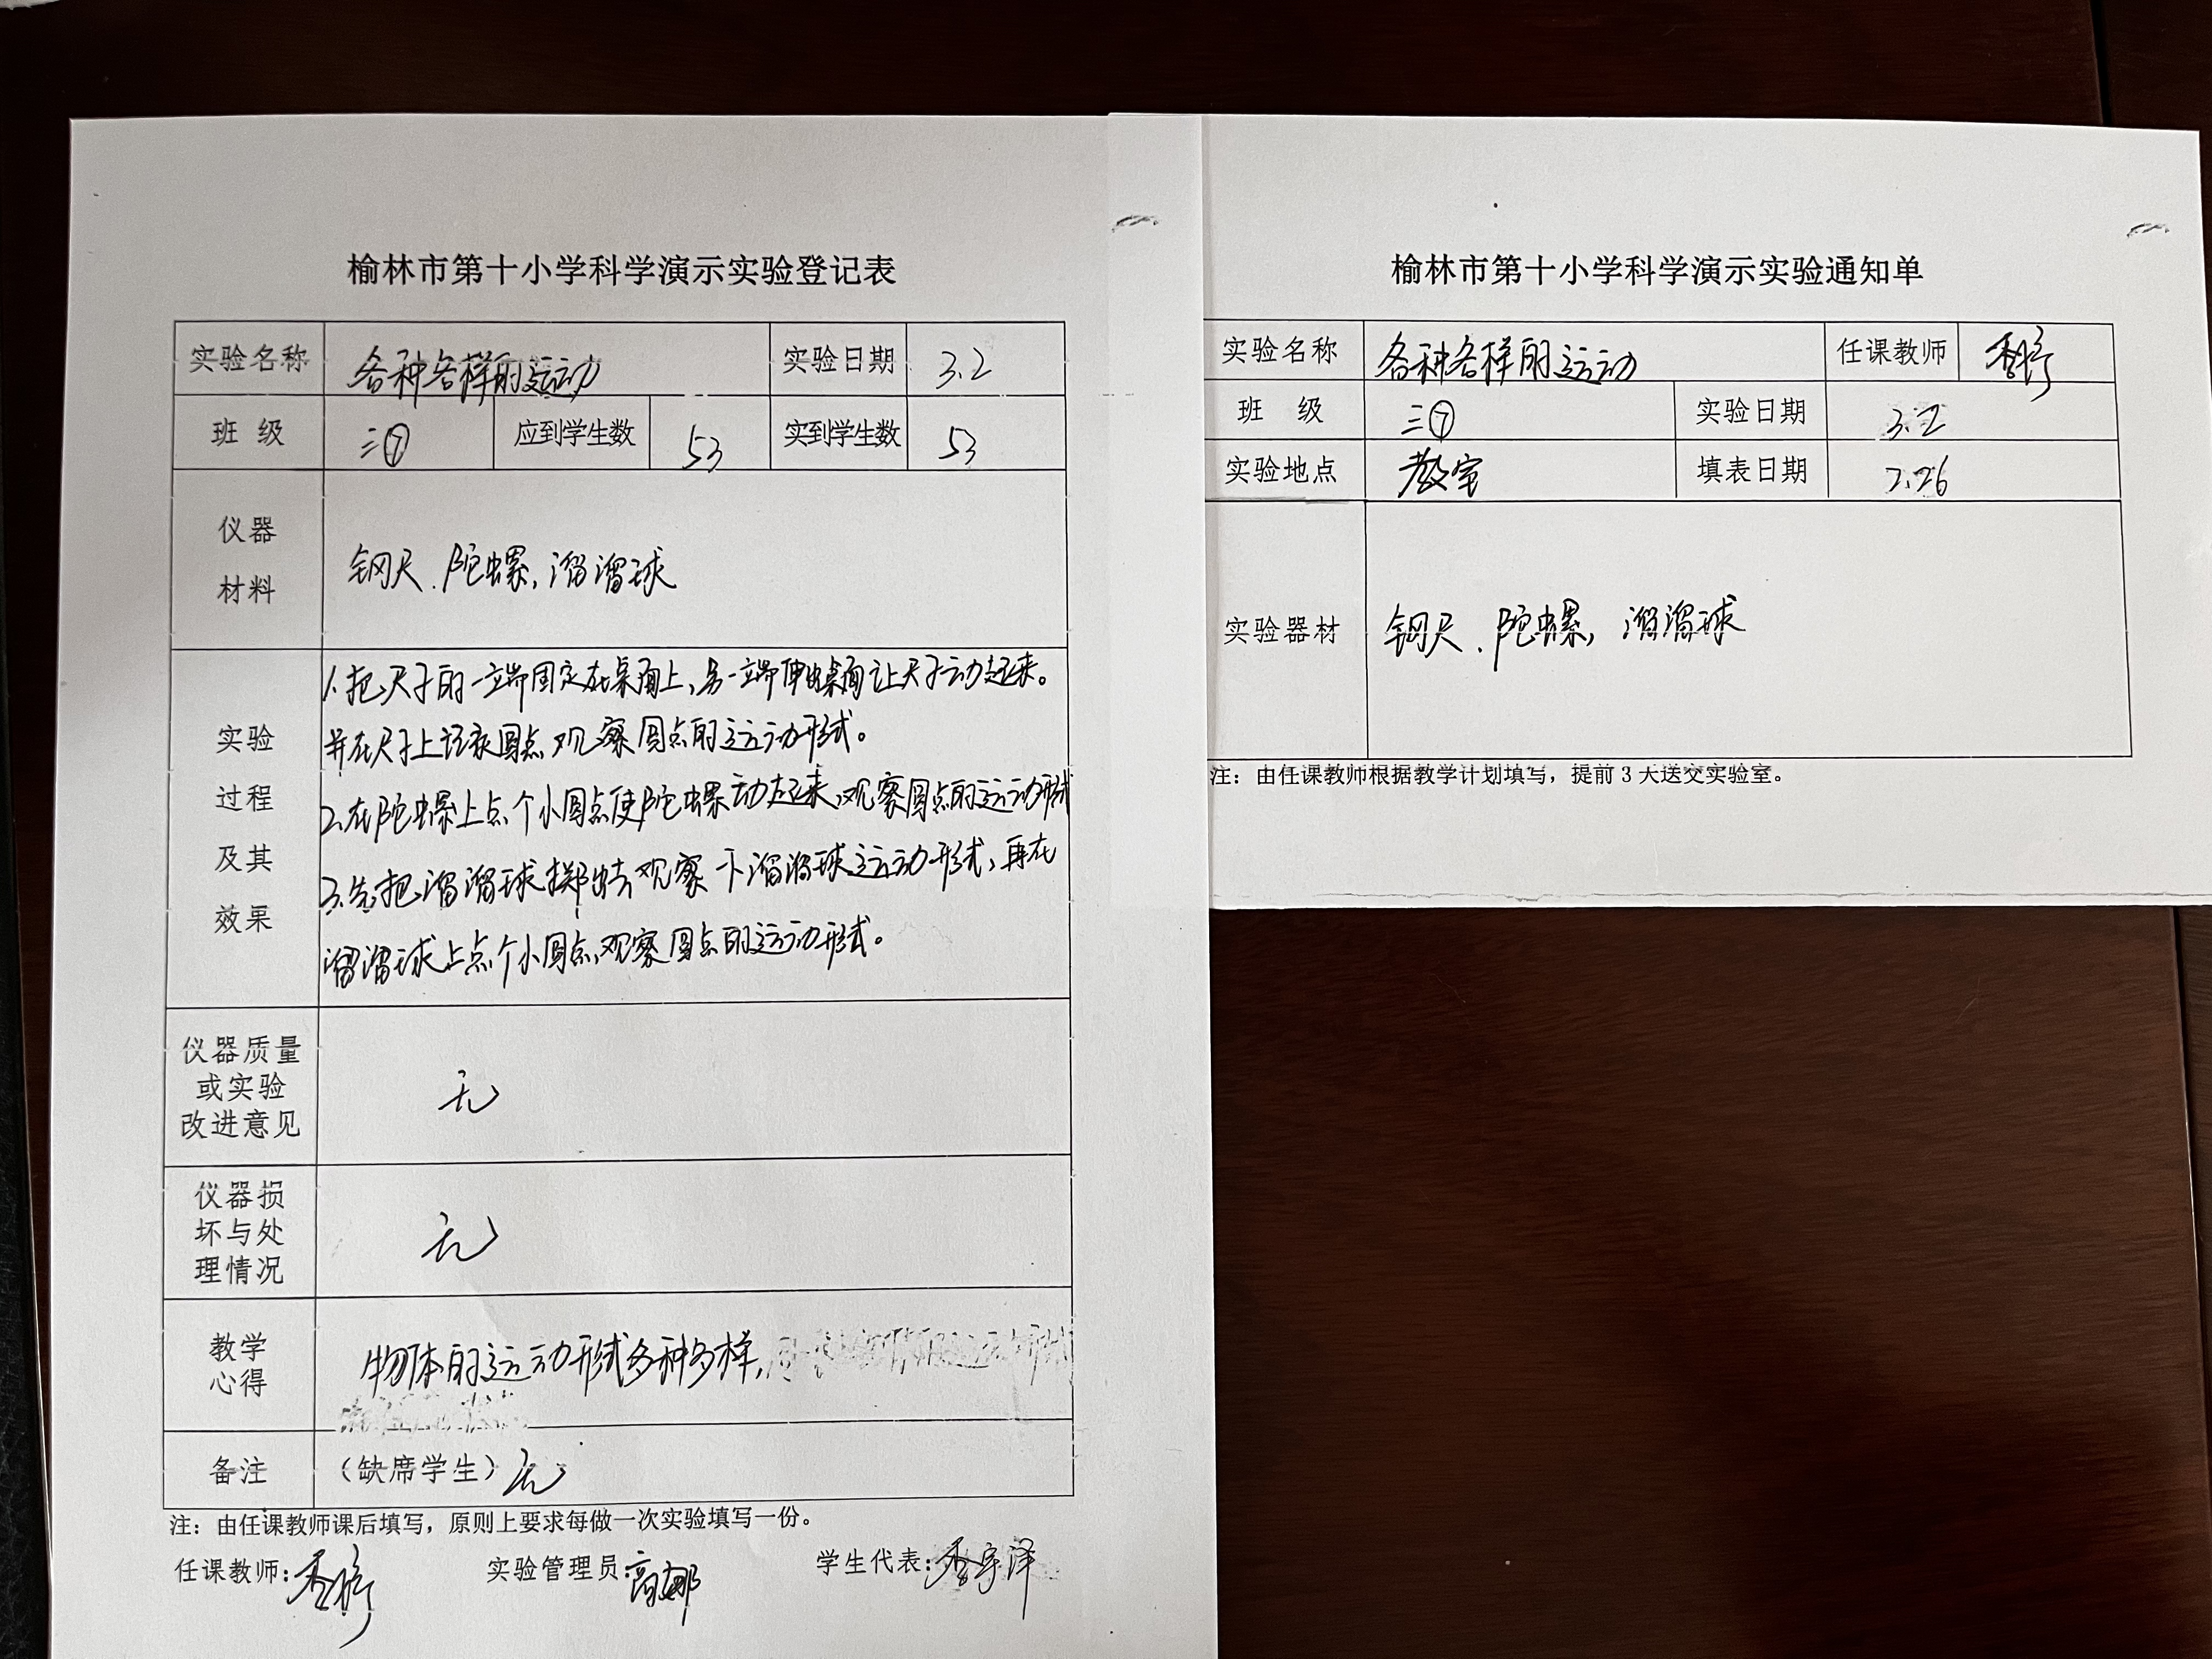 榆林市第十小学科学演示实验登记表
实验名称 各种各样的运动 实验日期 3.2
班 级 三⑦ 应到学生数 53 实到学生数 53
仪器
材料
钢尺.陀螺,溜溜球
实验
过程
及其
效果
1.把尺子的一端固定在桌面上,另一端伸出桌面让尺子动起来。
并在尺子上记录圆点,观察圆点的运动形式。
2.在陀螺上点个小圆点使陀螺动起来,观察圆点的运动形式
3.先把溜溜球掷出去,观察一下溜溜球运动形式,再在
溜溜球上点个小圆点,观察圆点的运动形式。
仪器质量
或实验
改进意见
无
仪器损
坏与处
理情况
无
教学
心得
物体的运动形式多种多样,
备注 (缺席学生) 无
注:由任课教师课后填写,原则上要求每做一次实验填写一份。
任课教师: 实验管理员:高娜 学生代表:宇泽
榆林市第十小学科学演示实验通知单
实验名称 各种各样的运动 任课教师
班 级 三⑦ 实验日期 3.2
实验地点 教室 填表日期 2.26
实验器材 钢尺.陀螺,溜溜球
注:由任课教师根据教学计划填写,提前3天送交实验室。